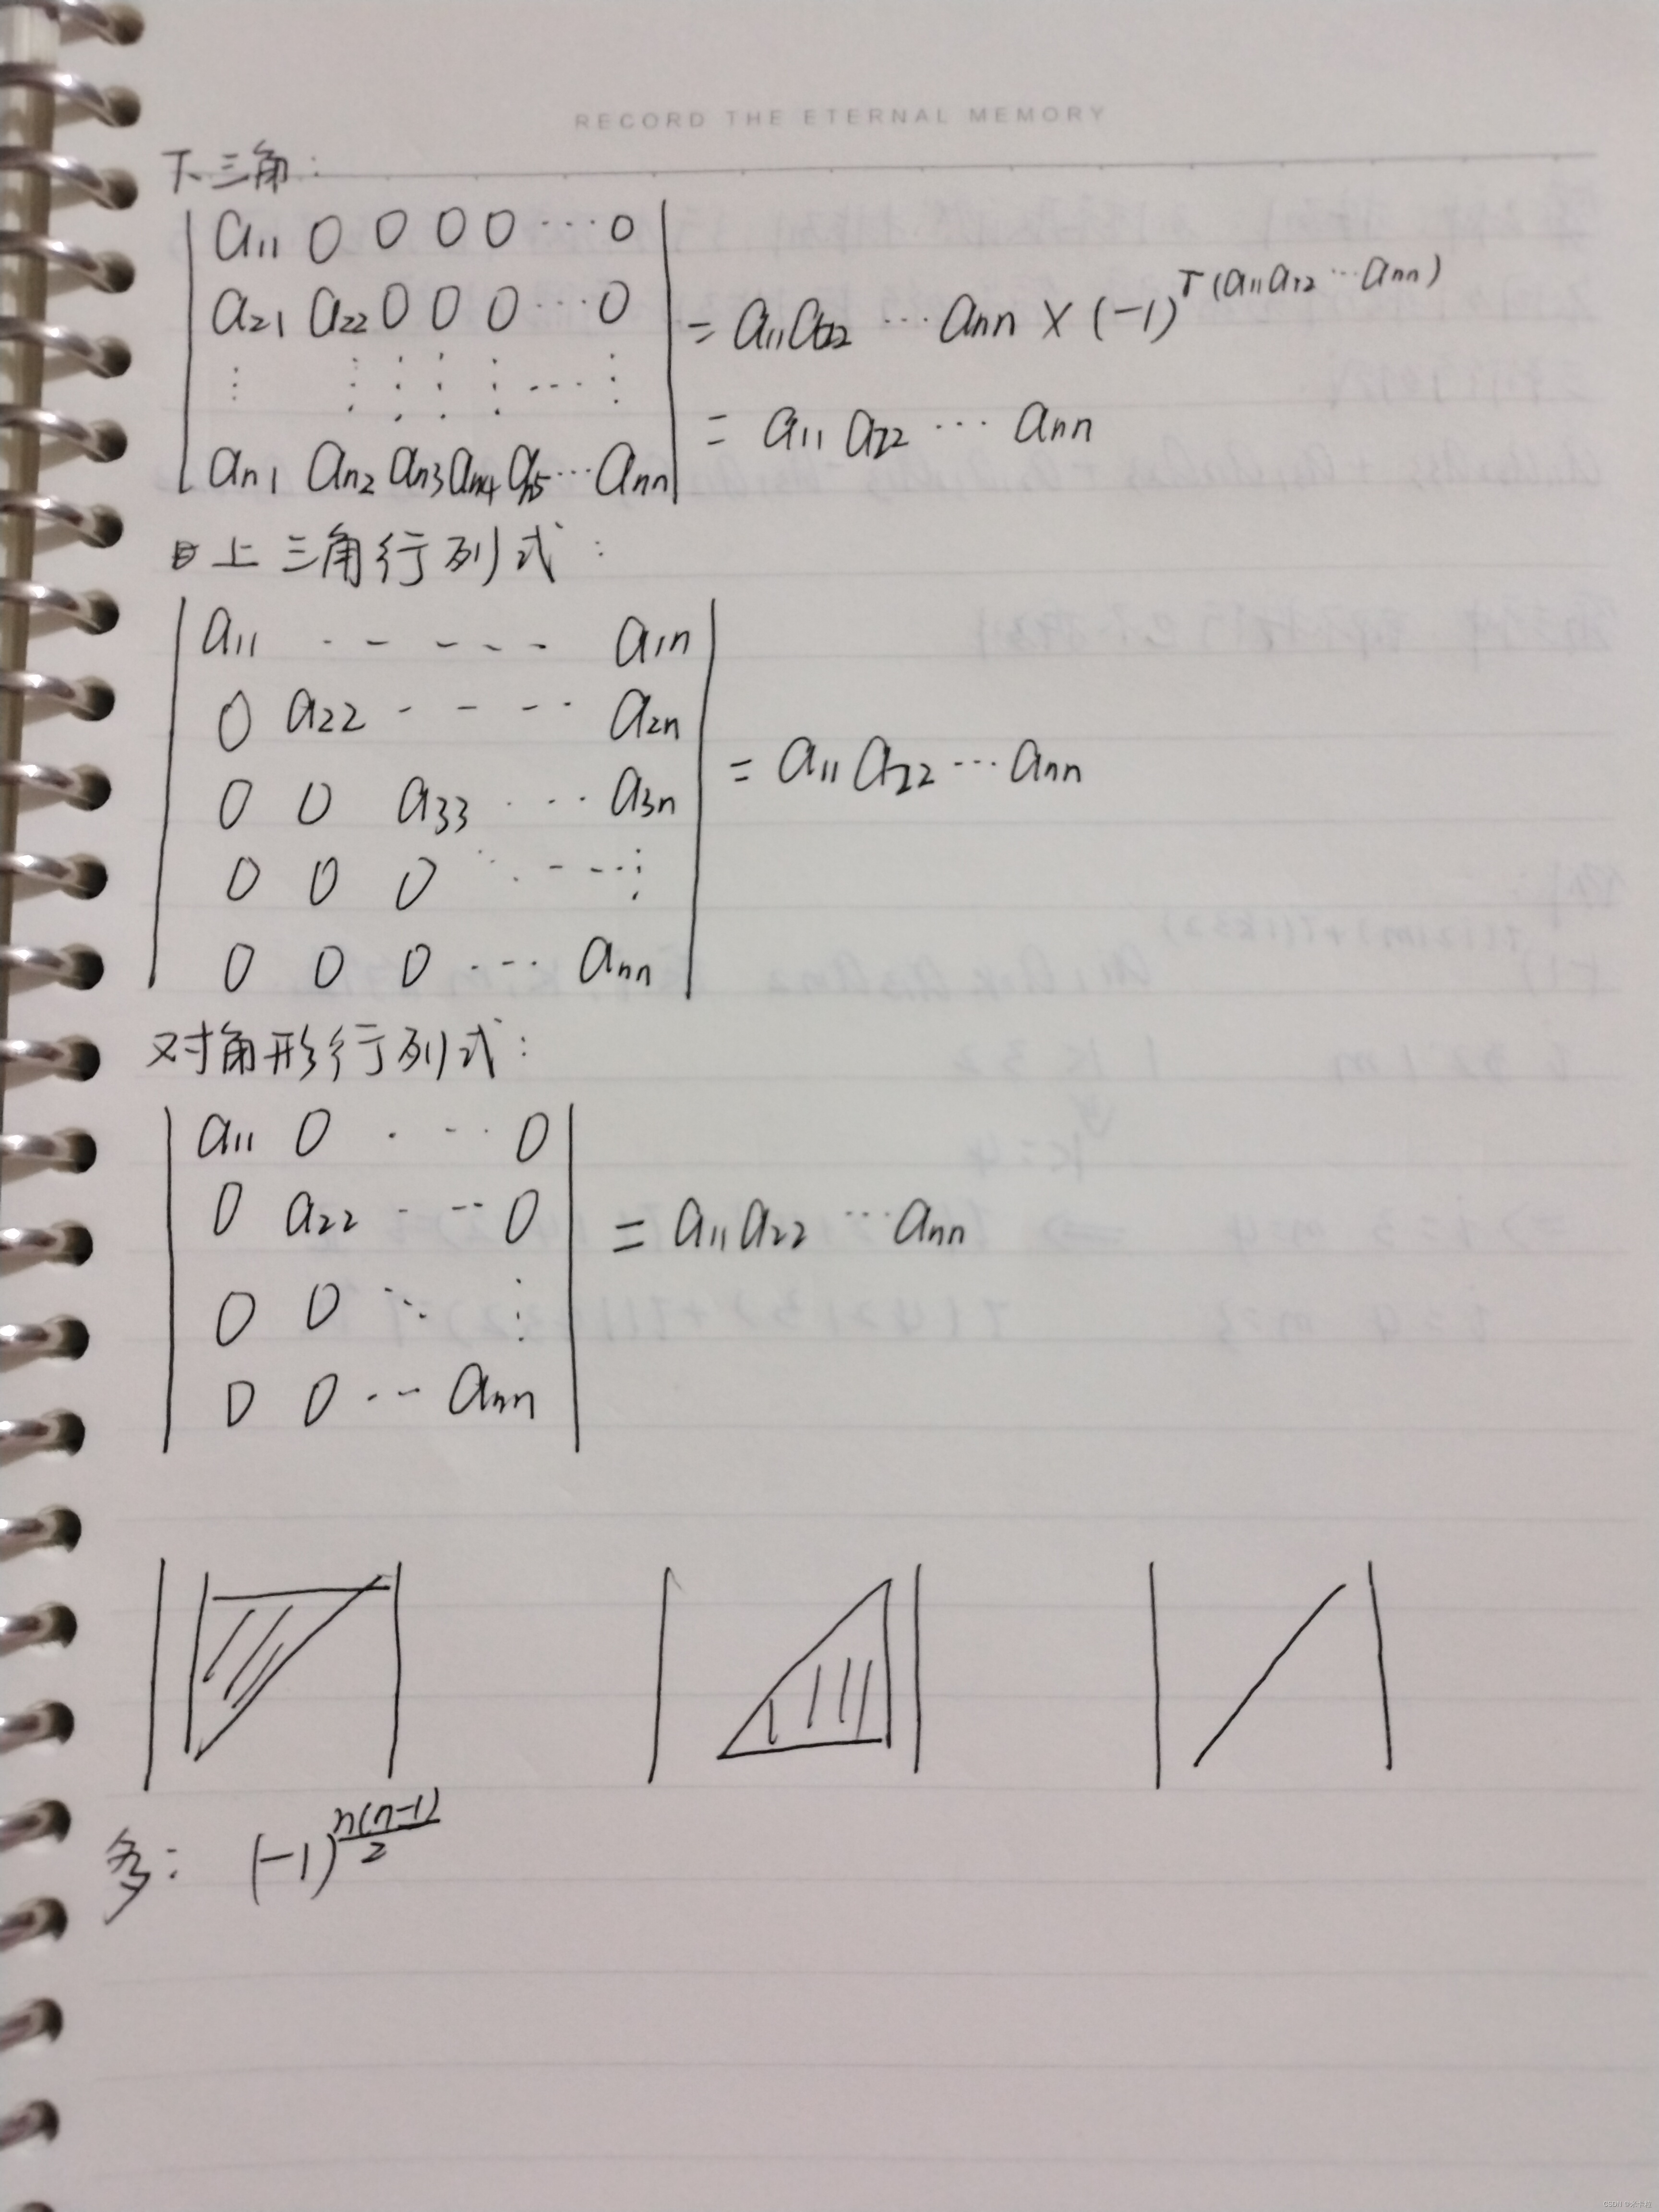 RECORD THE ETERNAL MEMORY
下三角:
a11 0 0 0 0 ··· 0
a21 a22 0 0 0 ··· 0
⋮ ⋮ ⋮ ⋮ ⋮ ---- ⋮
an1 an2 an3 an4 an5 ··· ann
= a11a22 ··· ann × (-1)^τ(a11a22 ··· ann)
= a11 a22 ··· ann
上三角行列式:
a11 ----- a1n
0 a22 ---- a2n
0 0 a33 ···· a3n
0 0 0 ⋱ --- ⋮
0 0 0 ···· ann
= a11 a22 ··· ann
对角形行列式:
a11 0 · ·· 0
0 a22 · -- 0
0 0 ⋱ ⋮
0 0 ·-- ann
= a11a22 ··· ann
多: (-1)^(n(n-1)/2)